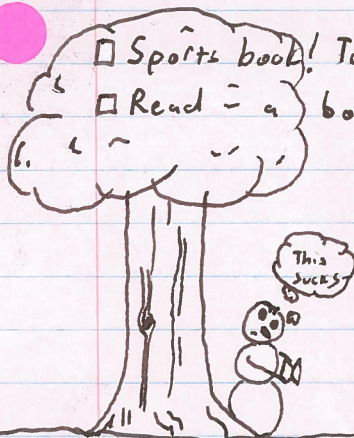 □ Sports book! To
□ Read - a bo
This
sucks